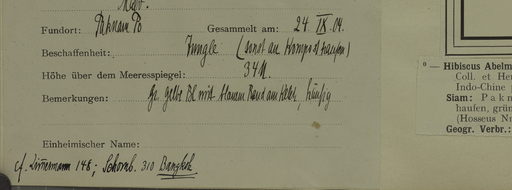 Fundort: Paknam Po Gesammelt am: 24. IX. 04.
Beschaffenheit: Jungle (sonst an
Höhe über dem Meeresspiegel: 34 M.
Bemerkungen: Gr. gelbe Bl. mit blauem Rand am Kelch, häufig
Einheimischer Name:
cf. Zimmermann 148; Schomb. 310 Bangkok
° — Hibiscus Abelm
Coll. et He
Indo-Chine
Siam: Pakn
haufen, grün
(Hosseus Nr
Geogr. Verbr.: